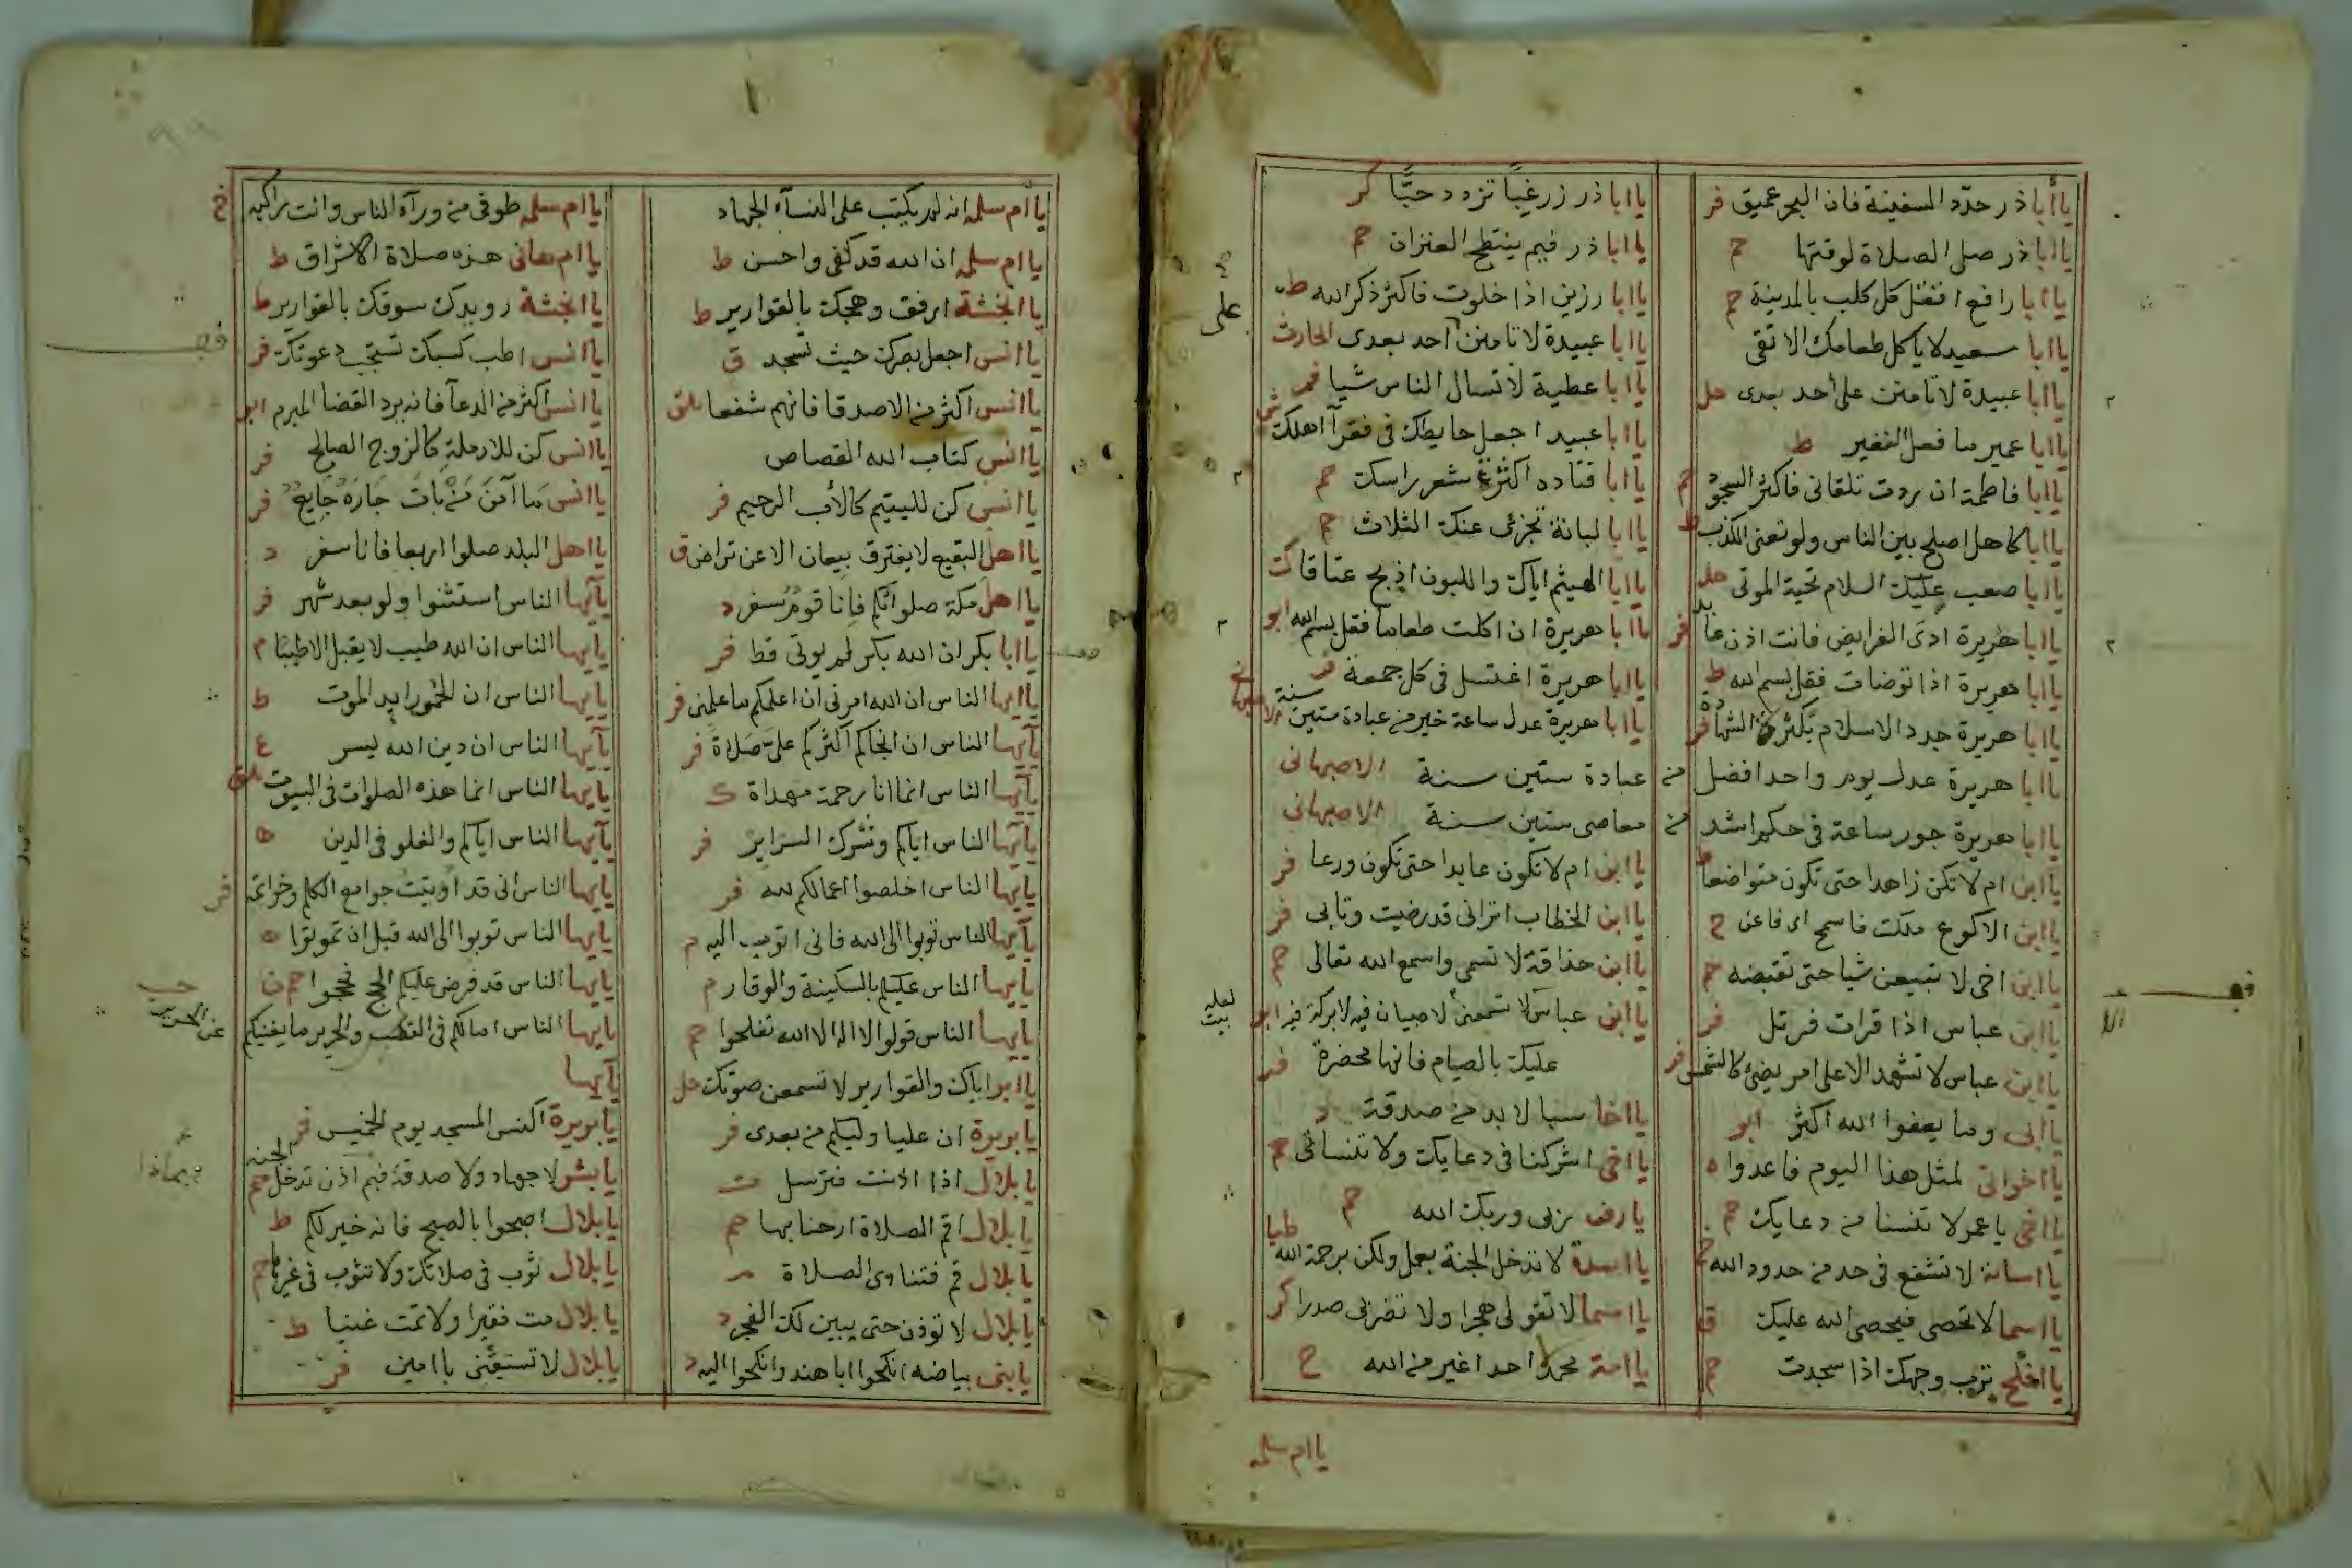 ياأبا ذر حدد السفينة فان البحر عميق فر
ياابا ذر صلى الصلاة لوقتها حم
ياابا رافع اقتل كل كلب بالمدينة حم
ياابا سعيد لا ياكل طعامك الا تقى
ياابا عبيدة لا تامنن على أحد بعدى حل
ياابا عمير ما فعل النغير ط
ياابا فاطمة ان اردت تلقانى فاكثر السجود حم
ياابا كاهل اصلح بين الناس ولو تعنى الكذب ط
ياابا صعب عليك السلام تحية الموتى
ياابا هريرة ادى الفرايض فانت اذن عابد فر
ياابا هريرة اذا توضات فقل بسم الله ط
ياابا هريرة جدد الاسلام بكثرة الشهادة فر
ياابا هريرة عدل يوم واحد افضل من عبادة ستين سنة الاصبهانى
ياابا هريرة جور ساعة فى حكم اشد من معاصى ستين سنة الاصبهانى
ياابن ام لا تكن زاهدا حتى تكون متواضعا ط
ياابن الاكوع ملكت فاسجح اى فاعن خ
ياابن اخى لا تبيعن شيا حتى تقبضه حم
ياابن عباس اذا قرات فرتل فر
ياابن عباس لا تشهد الا على امر يضئ كالشمس فر
ياابى وما يعفوا الله اكثر ابو
يااخوانى لمثل هذا اليوم فاعدوا ه
يااخى ياعمر لا تنسنا من دعايك حم
يااسامة لا تشفع فى حد من حدود الله
يااسما لا تحصى فيحصى الله عليك ق
ياافلح ترب وجهك اذا سجدت حم
ياابا ذر زر غبا تزدد حبا كر
ياابا ذر فيم ينتطح العنزان حم
ياابا رزين اذا خلوت فاكثر ذكر الله ط
ياابا عبيدة لا تامنن احد بعدى الحارث
ياابا عطية لا تسال الناس شيا
ياابا عبيد اجعل حايطك فى فقرآ اهلك ش
ياابا قتاده اكثر شعر راسك حم
ياابا لبانة تجزئ عنك الثلاث حم
ياابا الهيثم اياك واللبون اذبح عناقا ك
ياابا هريرة ان اكلت طعاما فقل بسم الله ابو
ياابا هريرة اغتسل فى كل جمعة فر
ياابا هريرة عدل ساعة خير من عبادة ستين سنة
ياابن ام لا تكون عابدا حتى تكون ورعا فر
ياابن الخطاب اترانى قد رضيت وتابى فر
ياابن حذاقة لا تسمى واسمع الله تعالى حم
ياابن عباس لا تسمعن
عليك بالصيام فانها محضرة فر
يااخا سبا لا بد من صدقة د
يااخى اشركنا فى دعايك ولا تنسانى
يارف ربى وربك الله حم
يااسدة لا تدخل الجنة بعمل ولكن برحمة الله
يااسما لا تقولى هجرا ولا تضربى صدرا كر
ياامة محمد احد اغير من الله خ
ياام سلمه
ياام سلمه انه لم يكتب على النسآء الجهاد
ياام سلمه ان الله قد كفى واحسن ط
ياانجشة ارفق ويحك بالقوارير ط
ياانس اجعل بصرك حيث تسجد ق
ياانس اكثر من الاصدقا فانهم شفعا
ياانس كتاب الله القصاص
ياانس كن لليتيم كالأب الرحيم فر
يااهل البقيع لا يفترق بيعان الا عن تراض ق
يااهل مكة صلوا فانا قوم سفر د
ياابا بكر ان الله بكر لم يوتى قط فر
ياايها الناس ان الله امرنى ان اعلمكم ما علمنى فر
ياايها الناس ان انجاكم اكثركم علىّ صلاة فر
ياايها الناس انما انا رحمة مهداة ك
ياايها الناس اياكم وشرك السراير فر
يايها الناس اخلصوا اعمالكم لله فر
ياايها الناس توبوا الى الله فانى اتوب اليه م
يايها الناس عليكم بالسكينة والوقار م
يايها الناس قولوا لا اله الا الله تفلحوا حم
ياابرا اياك والقوارير لا تسمعن صوتك حل
يابريرة ان عليا وليكم من بعدى فر
يابلال اذا اذنت فترسل ت
يابلال اقم الصلاة ارحنا بها حم
يابلال قم فتنادى الصلاة
يابلال لا توذن حتى يبين لك الفجر د
يابنى بياضه انكحوا اباهند وانكحوا اليه د
ياام سلمه طوفى من ورآء الناس وانت راكبه خ
ياام هانى هذه صلاة الاشراق ط
ياانجشة رويدك سوقك بالقوارير ط
ياانس اطب كسبك تستجب دعوتك فر
ياانس اكثر من الدعآ فانه يرد القضا المبرم ابو
ياانس كن للارملة كالزوج الصالح فر
ياانس ما آمن من بات جاره جايع فر
يااهل البلد صلوا اربعا فانا سفر د
ياايها الناس استثنوا ولو بعد شهر فر
يايها الناس ان الله طيب لا يقبل الا طيبا م
يايها الناس ان الخمور ابد الموت ط
ياايها الناس ان دين الله يسر ع
يايها الناس انما هذه الصلوات فى البيوت
ياايها الناس اياكم والغلو فى الدين ه
يايها الناس انى قد اوتيت جوامع الكلم وخواتمه فر
يايها الناس توبوا الى الله قبل ان تموتوا ه
يايها الناس قد فرض عليكم الحج فحجوا حم ن
يايها الناس امالكم فى القطب والحرير ما يغنيكم عن الحرير
يايها
يابريرة اكنسى المسجد يوم الخميس فر
يابشر لا جهاد ولا صدقة فبم اذن تدخل الجنه حم
يابلال اصبحوا بالصبح فانه خير لكم ط
يابلال ثوب فى صلاتك ولا تثوب فى غيرها حم
يابلال مت فقيرا ولا تمت غنيا ط
يابلال لا تسبقنى باامين